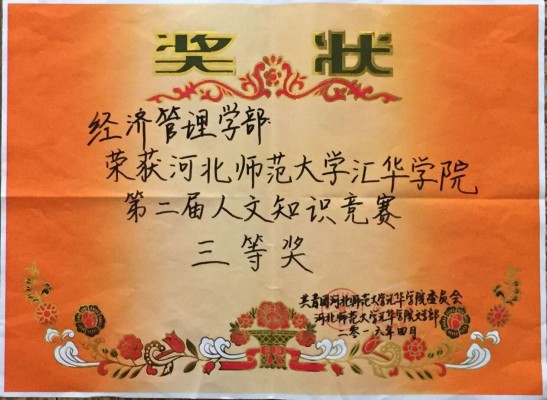 奖状
经济管理学部:
荣获河北师范大学汇华学院
第二届人文知识竞赛
三等奖
共青团河北师范大学汇华学院委员会
河北师范大学汇华学院文学部
二零一六年四月